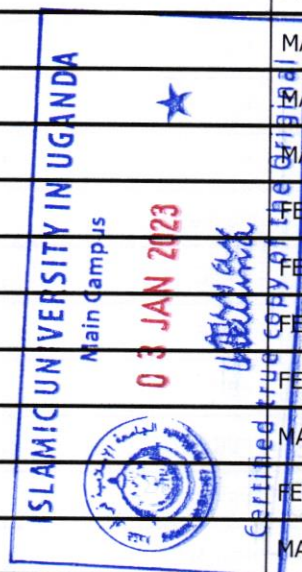 ISLAMIC UNIVERSITY IN UGANDA
Main Campus
03 JAN 2023
Certified true copy of the Original
MA
MA
MA
FE
FE
FE
FE
MA
FE
MA